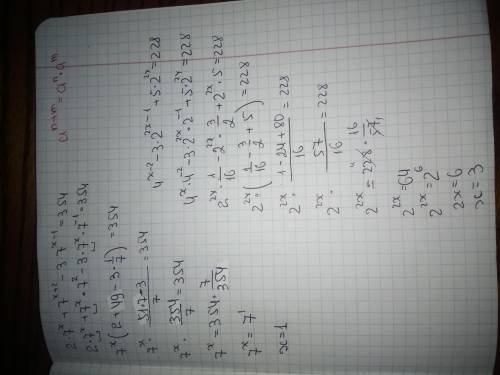 aⁿ⁺ᵐ = aⁿ · aᵐ
2·7ˣ + 7ˣ⁺² − 3·7ˣ⁻¹ = 354
2·7ˣ + 7ˣ·7² − 3·7ˣ·7⁻¹ = 354
7ˣ(2 + 49 − 3·1/7) = 354
7ˣ · (51·7−3)/7 = 354
7ˣ · 354/7 = 354
7ˣ = 354 · 7/354
7ˣ = 7¹
x = 1
4ˣ⁻² − 3·2²ˣ⁻¹ + 5·2²ˣ = 228
4ˣ·4⁻² − 3·2²ˣ·2⁻¹ + 5·2²ˣ = 228
2²ˣ · 1/16 − 2²ˣ · 3/2 + 2²ˣ · 5 = 228
2²ˣ · (1/16 − 3/2 + 5) = 228
2²ˣ · (1−24+80)/16 = 228
2²ˣ · 57/16 = 228
2²ˣ = 228 · 16/57
2²ˣ = 64
2²ˣ = 2⁶
2x = 6
x = 3